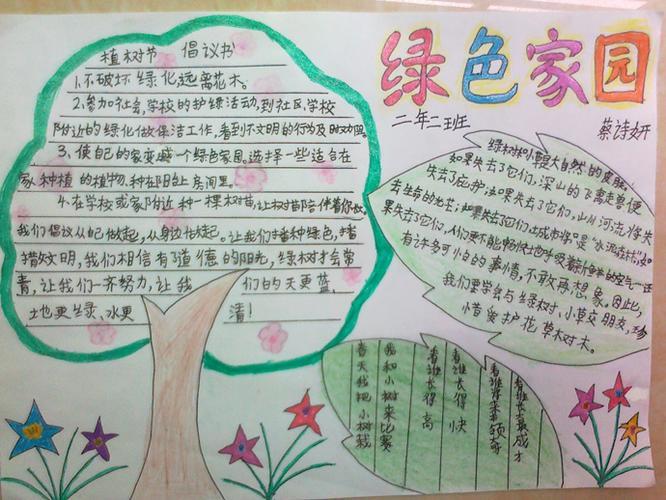 绿色家园
二年二班
蔡诗妍
植树节 倡议书
1、不破坏绿化,远离花木。
2、参加社会,学校的护绿活动,到社区,学校
附近的绿化做保洁工作,看到不文明的行为及时劝阻。
3、使自己的家变成一个绿色家园。选择一些适合在
家种植的植物,种在阳台上房间里。
4、在学校或家附近种一棵树苗,让树苗陪伴着你长。
我们倡议从自己做起,从身边做起。让我们播种绿色,播
撒文明,我们相信有了道德的阳光,绿树才会常
青,让我们一齐努力,让我们的天更蓝,
地更绿、水更清!
绿树和小草是大自然的皮肤,
如果失去了它们,深山的飞禽走兽便
失去了庇护;如果失去了它们,山川河流将失
去生命的光芒;如果失去了它们,城市将是"水泥
果失去了它们,人们要不能畅快地呼吸新鲜的空气
有许多可怕的事情,不敢再想象。因此,
我们要学会与绿树、小草交朋友,珍
惜爱护花草树木。
春天我把小树栽
我和小树来比赛
看谁长得高
看谁长得快
看谁
看谁长大最成才